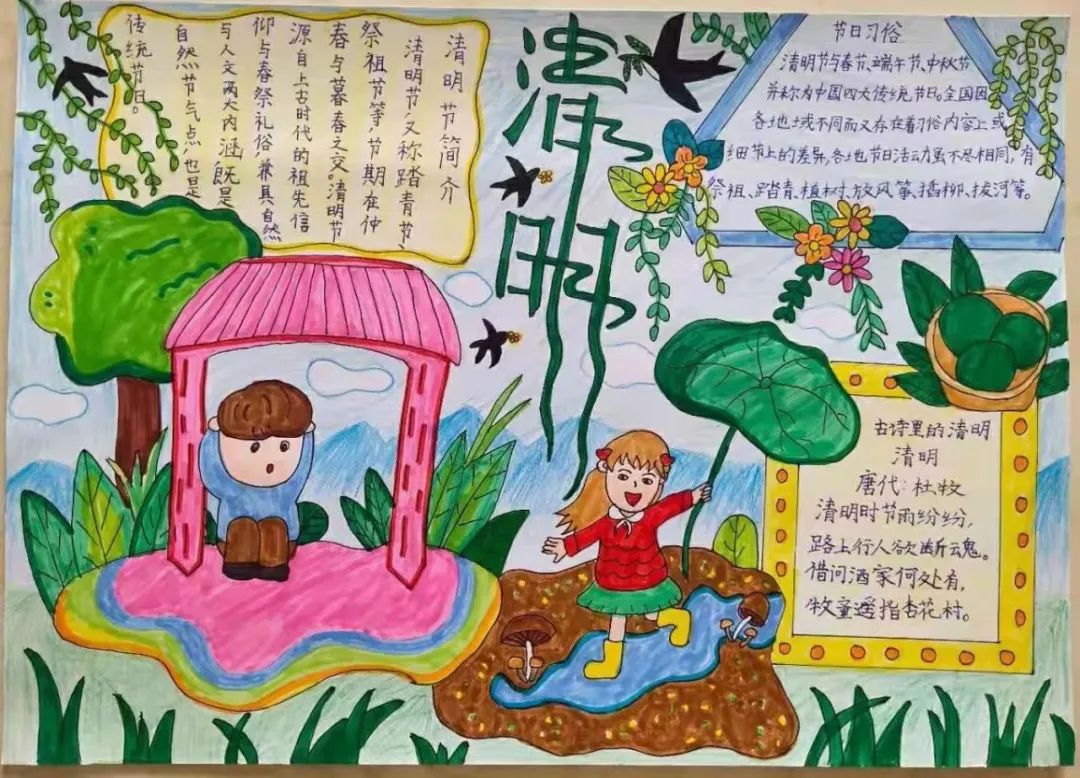 清明节简介
清明节,又称踏青节、
祭祖节等,节期在仲
春与暮春之交。清明节
源自上古时代的祖先信
仰与春祭礼俗,兼具自然
与人文两大内涵,既是
自然节气点,也是
传统节日。
清明
节日习俗
清明节与春节、端午节、中秋节
并称为中国四大传统节日。全国因
各地域不同而又存在着习俗内容上或
细节上的差异,各地节日活动虽不尽相同,有
祭祖、踏青、植树、放风筝、插柳、拔河等。
古诗里的清明
清明
唐代:杜牧
清明时节雨纷纷,
路上行人欲断魂。
借问酒家何处有,
牧童遥指杏花村。